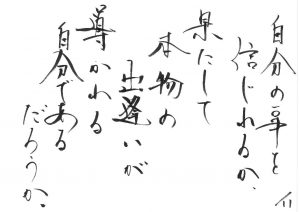 自分の事を
信じれるか、
果たして
本物の
出逢いが
導かれる
自分である
だろうか。